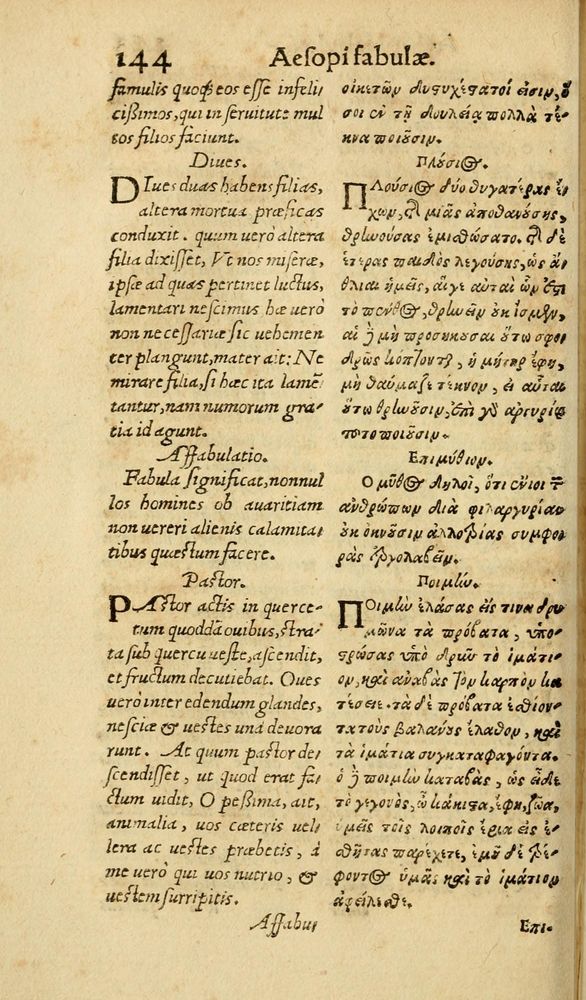 144 Aesopi fabulæ.
famulis quoq; eos esse infeli
cissimos, qui in seruitute mul
tos filios faciunt.
Diues.
DIues duas habens filias,
altera mortua præficas
conduxit. quum uerò altera
filia dixisset, Vt nos miseræ,
ipsæ ad quas pertinet luctus,
lamentari nescimus hæ uerò
non necessariæ sic uehemen
ter plangunt, mater ait: Ne
mirare filia, si hæc ita lamē
tantur, nam numorum gra-
tia id agunt.
Affabulatio.
Fabula significat, nonnul
los homines ob auaritiam
non uereri alienis calamita-
tibus quæstum facere.
Pastor.
PAstor actis in querce-
tum quoddā ouibus, stra-
ta sub quercu ueste, ascendit,
et fructum decutiebat. Oues
uerò inter edendum glandes,
nesciæ & uestes unà deuora
runt. At quum pastor de-
scendisset, ut quod erat fa-
ctum uidit, O pessima, ait,
animalia, uos cæteris uel-
lera ac uestes præbetis, à
me uerò qui uos nutrio, &
uestem surripitis.
Affabu-
οἰκετῶν δυστυχέστατοί εἰσιν, ὅ
σοι ἐν τῇ δουλείᾳ πολλὰ τέ-
κνα ποιοῦσιν.
Πλούσιος.
ΠΛούσιος δύο θυγατέρας ἔ-
χων, τῆς μιᾶς ἀποθανούσης,
θρηνούσας ἐμισθώσατο. τῆς δὲ
ἑτέρας παιδὸς λεγούσης, ὡς ἄ-
θλιαι ἡμεῖς, αἵγε αὐταὶ ὧν ἐστὶ
τὸ πένθος, θρηνεῖν οὐκ ἴσμεν,
αἱ δὲ μὴ προσήκουσαι οὕτω σφο-
δρῶς κόπτονται, ἡ μήτηρ ἔφη,
μὴ θαύμαζε τέκνον, εἰ αὗται
οὕτω θρηνοῦσιν, ἐπὶ γὰρ ἀργυρίῳ
τοῦτο ποιοῦσιν.
Επιμύθιον.
Ο μῦθος δηλοῖ, ὅτι ἔνιοι τῶν
ἀνθρώπων διὰ φιλαργυρίαν
οὐκ ὀκνοῦσιν ἀλλοτρίας συμφο
ρὰς ἐργολαβεῖν.
Ποιμήν.
ΠΟιμὴν ἐλάσας εἴς τινα δρυ
μῶνα τὰ πρόβατα, ὑπο-
στρώσας ὑπὸ δρυῒν τὸ ἱμάτι-
ον, καὶ ἀναβὰς τὸν καρπὸν κα
τέσειε. τὰ δὲ πρόβατα ἐσθίον-
τα τοὺς βαλάνους ἔλαθον, καὶ
τὰ ἱμάτια συγκαταφαγόντα.
ὁ δὲ ποιμὴν καταβὰς, ὡς εἶδε
τὸ γεγονὸς, ὦ κάκιστα, ἔφη, ζῶα,
ὑμεῖς τοῖς λοιποῖς ἔρια εἰς ἐ-
σθῆτας παρέχετε, ἐμοῦ δὲ τρέ-
φοντος ὑμᾶς καὶ τὸ ἱμάτιον
ἀφείλεσθε.
Επι-